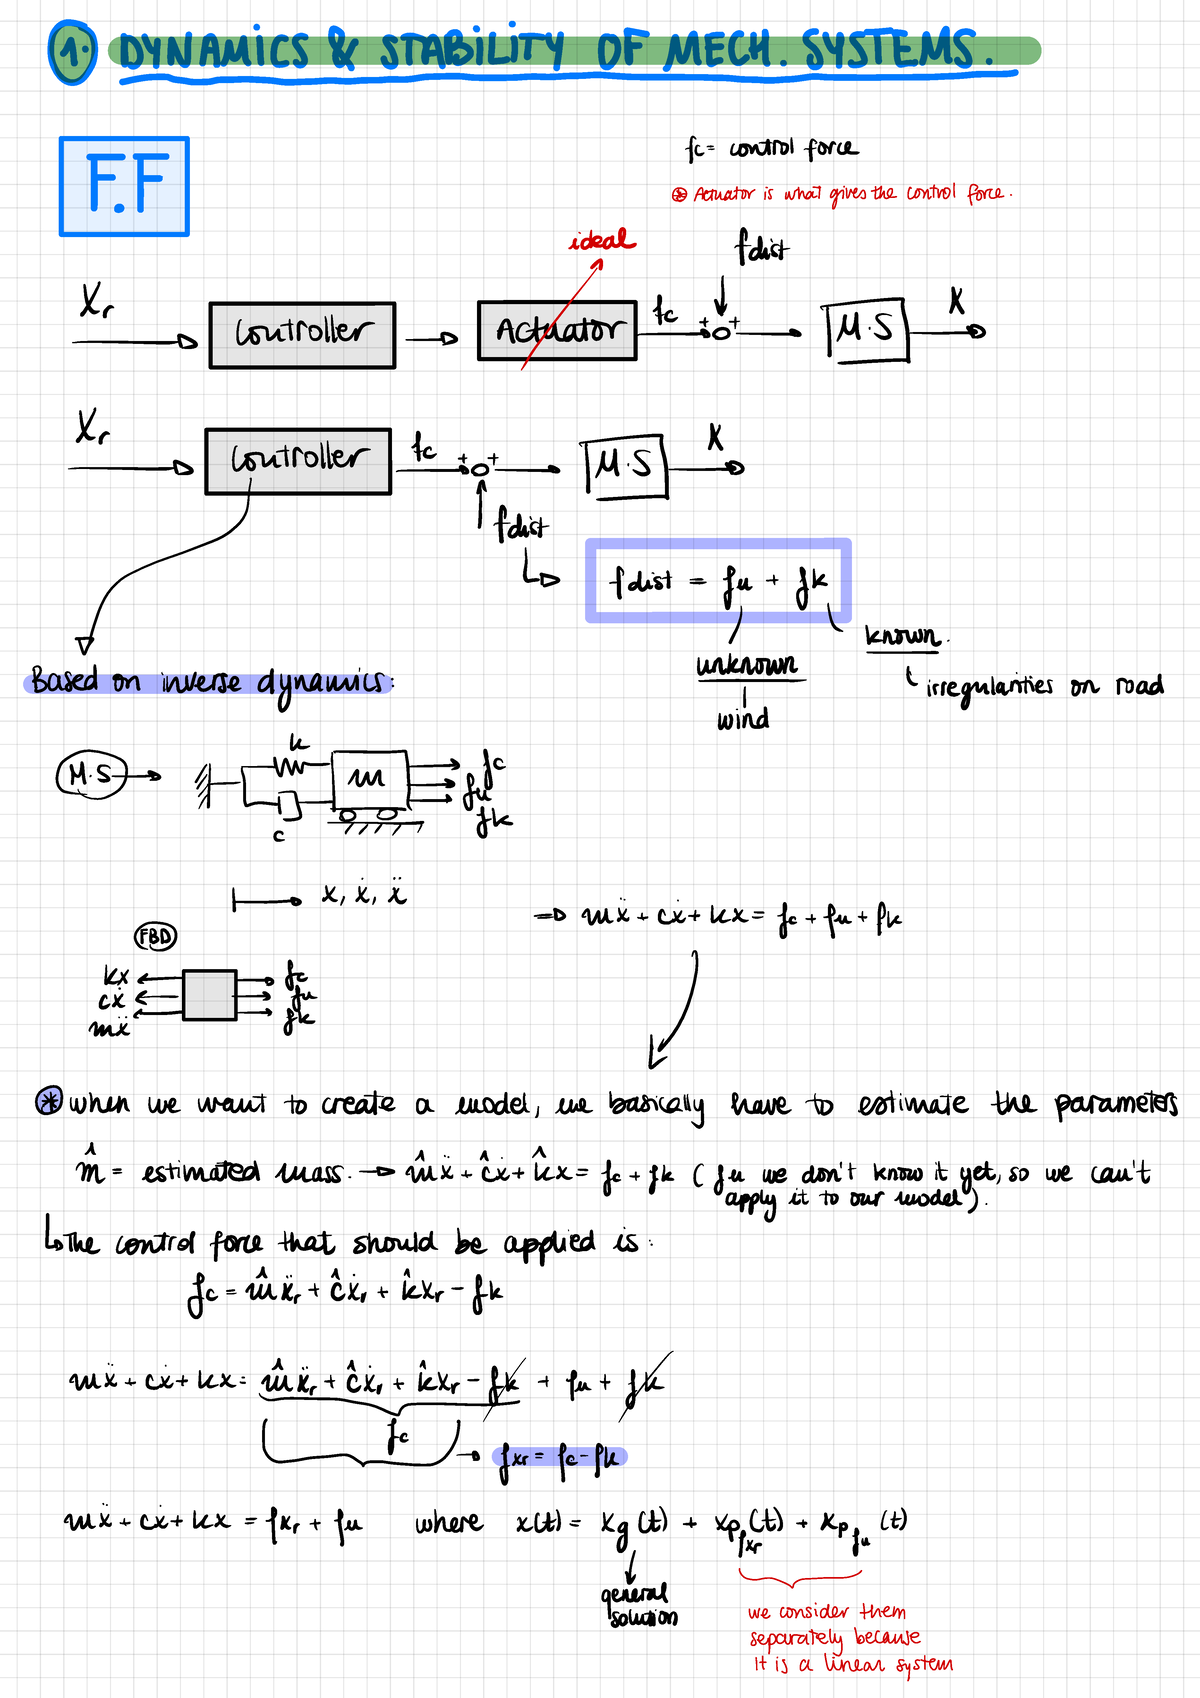 1. DYNAMICS & STABILITY OF MECH. SYSTEMS.
F.F
fc = control force
⊛ Actuator is what gives the control force.
ideal
fdist
Xr
Controller
Actuator
fc
+
+
M.S
X
Xr
Controller
fc
+
+
M.S
X
fdist
fdist = fu + fk
unknown
wind
known.
irregularities on road
Based on inverse dynamics:
M.S
k
c
m
fc
fu
fk
x, ẋ, ẍ
⇒ mẍ + cẋ + kx = fc + fu + fk
FBD
kx
cẋ
mẍ
fc
fu
fk
⊛ when we want to create a model, we basically have to estimate the parameters
m̂ = estimated mass. → m̂ẍ + ĉẋ + k̂x = fc + fk ( fu we don't know it yet, so we can't
apply it to our model).
↳ The control force that should be applied is:
fc = m̂ẍr + ĉẋr + k̂xr - fk
mẍ + cẋ + kx = m̂ẍr + ĉẋr + k̂xr - fk + fu + fk
fc
→ fxr = fc - fk
mẍ + cẋ + kx = fxr + fu where x(t) = xg(t) + xpfxr(t) + xpfu(t)
general
solution
we consider them
separately because
it is a linear system